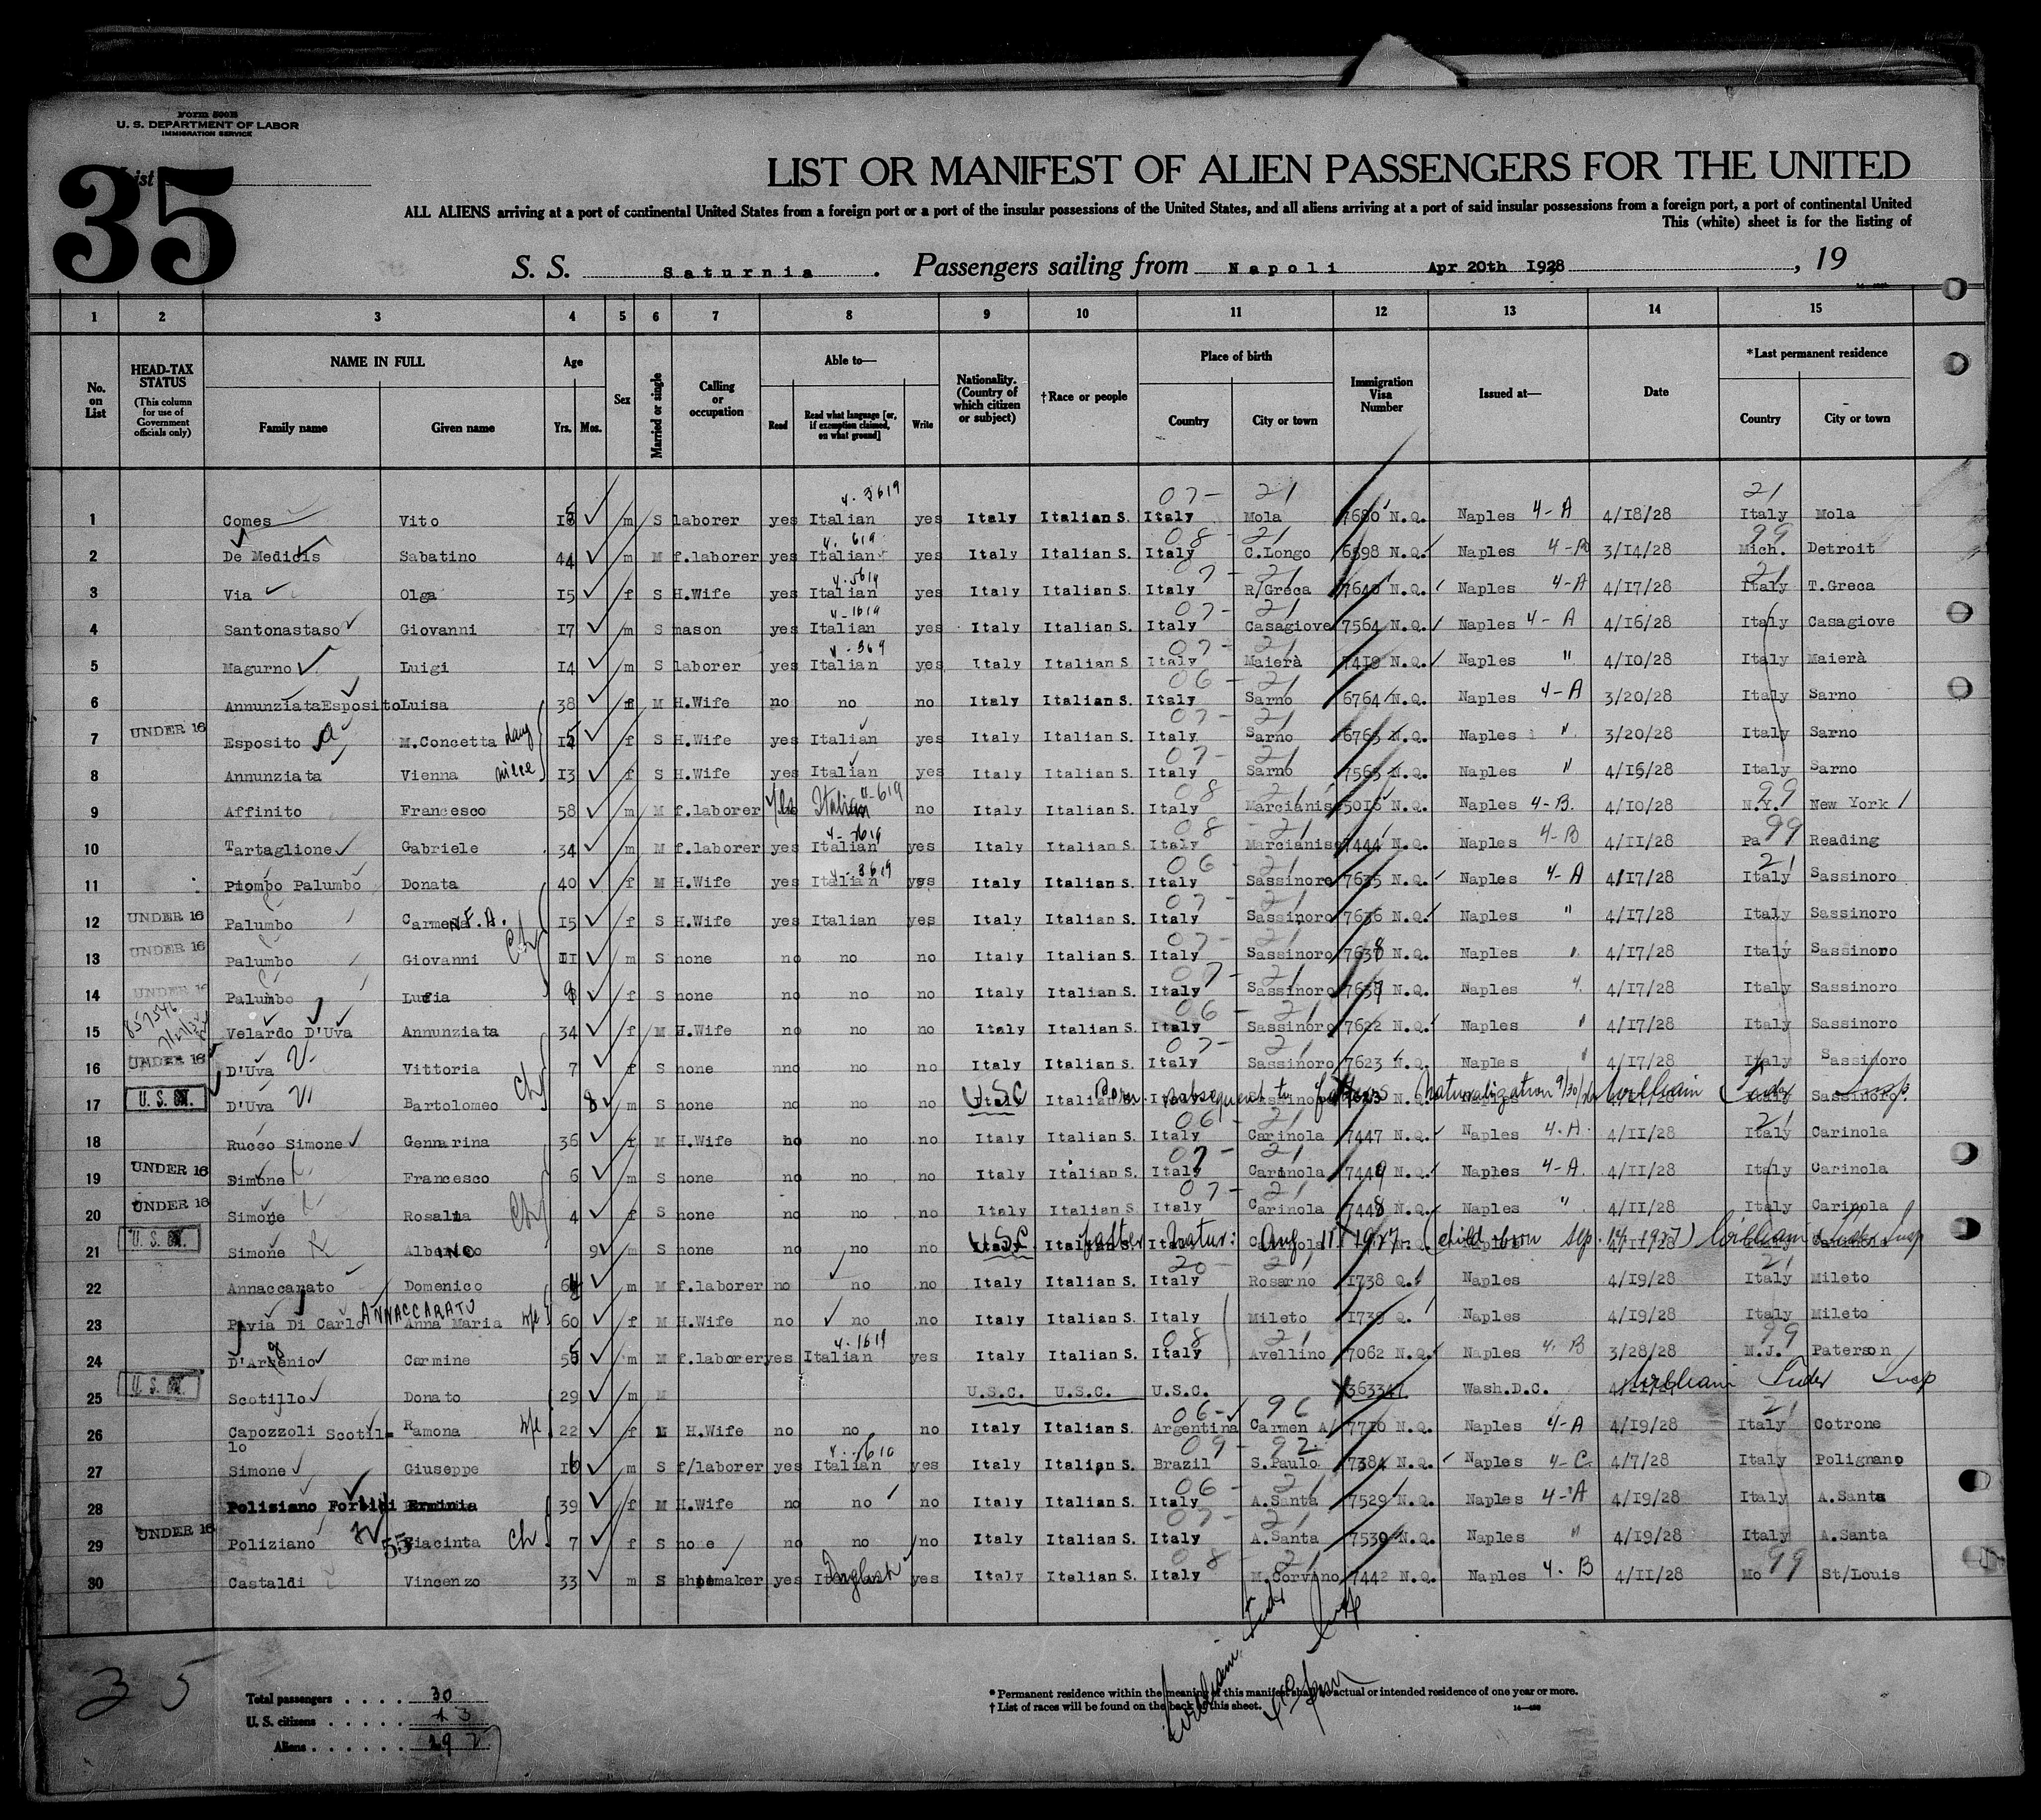 Form 500B
U. S. DEPARTMENT OF LABOR
IMMIGRATION SERVICE
List 35
LIST OR MANIFEST OF ALIEN PASSENGERS FOR THE UNITED
ALL ALIENS arriving at a port of continental United States from a foreign port or a port of the insular possessions of the United States, and all aliens arriving at a port of said insular possessions from a foreign port, a port of continental United
This (white) sheet is for the listing of
S. S. Saturnia . Passengers sailing from Napoli Apr 20th 1928 , 19
1 2 3 4 5 6 7 8 9 10 11 12 13 14 15
No. on List HEAD-TAX STATUS (This column for use of Government officials only) NAME IN FULL Family name Given name Age Yrs. Mos. Sex Married or single Calling or occupation Able to— Read Read what language [or, if exemption claimed, on what ground] Write Nationality. (Country of which citizen or subject) †Race or people Place of birth Country City or town Immigration Visa Number Issued at— Date *Last permanent residence Country City or town
1 Comes Vito m S laborer yes Italian 4-3619 yes Italy Italian S. Italy Mola 7680 N.Q. Naples 4-A 4/18/28 Italy Mola
2 De Medicis Sabatino 44 m M f.laborer yes Italian 4-619 yes Italy Italian S. Italy C.Longo 6598 N.Q. Naples 4-B 3/14/28 Mich. Detroit
3 Via Olga 15 f S H.Wife yes Italian yes Italy Italian S. Italy R/Greca 7640 N.Q. Naples 4-A 4/17/28 Italy T.Greca
4 Santonastaso Giovanni 17 m S mason yes Italian 4-1619 yes Italy Italian S. Italy Casagiove 7564 N.Q. Naples 4-A 4/16/28 Italy Casagiove
5 Magurno Luigi 14 m S laborer yes Italian 4-369 yes Italy Italian S Italy Maierà 7419 N.Q. Naples " 4/10/28 Italy Maierà
6 Annunziata Esposito Luisa 38 f M H.Wife no no no Italy Italian S. Italy Sarno 6764 N.Q. Naples 4-A 3/20/28 Italy Sarno
7 UNDER 16 Esposito M.Concetta daug f S H.Wife yes Italian yes Italy Italian S. Italy Sarno 6765 N.Q. Naples " 3/20/28 Italy Sarno
8 Annunziata Vienna niece 13 f S H.Wife yes Italian yes Italy Italian S. Italy Sarno 7565 N.Q. Naples " 4/16/28 Italy Sarno
9 Affinito Francesco 58 m M f.laborer Yes Italian 4-619 no Italy Italian S. Italy Marcianis 5016 N.Q. Naples 4-B. 4/10/28 N.Y. New York
10 Tartaglione Gabriele 34 m M f.laborer yes Italian yes Italy Italian S. Italy Marcianise 7444 N.Q. Naples 4-B 4/11/28 Pa Reading
11 Piombo Palumbo Donata 40 f M H.Wife yes Italian 4-3619 yes Italy Italian S. Italy Sassinoro 7635 N.Q. Naples 4-A 4/17/28 Italy Sassinoro
12 UNDER 16 Palumbo Carmena F.A. 15 f S H.Wife yes Italian yes Italy Italian S. Italy Sassinoro 7636 N.Q. Naples " 4/17/28 Italy Sassinoro
13 UNDER 16 Palumbo Giovanni ch 11 m S none no no no Italy Italian S. Italy Sassinoro 7638 N.Q. Naples " 4/17/28 Italy Sassinoro
14 UNDER 16 Palumbo Lucia f S none no no no Italy Italian S. Italy Sassinoro 7637 N.Q. Naples " 4/17/28 Italy Sassinoro
15 Velardo D'Uva Annunziata 34 f M H.Wife no no no Italy Italian S. Italy Sassinoro 7622 N.Q. Naples " 4/17/28 Italy Sassinoro
16 UNDER 16 D'Uva Vittoria ch 7 f S none no no no Italy Italian S. Italy Sassinoro 7623 N.Q. Naples " 4/17/28 Italy Sassinoro
17 U. S. CIT. D'Uva Bartolomeo 8 m S none no no no U.S.C Born subsequent to fathers naturalization William Tudor Insp. Sassinoro
18 Rucco Simone Gennarina 36 f M H.Wife no no no Italy Italian S. Italy Carinola 7447 N.Q. Naples 4-A. 4/11/28 Italy Carinola
19 UNDER 16 Simone Francesco 6 m S none no no no Italy Italian S. Italy Carinola 7449 N.Q. Naples 4-A. 4/11/28 Italy Carinola
20 UNDER 16 Simone Rosalna Ch 4 f S none no no no Italy Italian S. Italy Carinola 7448 N.Q. Naples " 4/11/28 Italy Carinola
21 U. S. CIT. Simone Albe 9 m S none no no no U.S.C father Natur: Aug 11/1927. (child born Sep. 14 1927) William Tudor Insp
22 Annaccarato Domenico 64 m M f.laborer no no no Italy Italian S. Italy Rosarno 1738 Q. Naples 4/19/28 Italy Mileto
23 Pavia Di Carlo ANNACCARATO Anna Maria wfe 60 f M H.Wife no no no Italy Italian S. Italy Mileto 1739 Q. Naples 4/19/28 Italy Mileto
24 D'Argenio Carmine m M f.laborer yes Italian 4-1619 yes Italy Italian S. Italy Avellino 7062 N.Q. Naples 4-B 3/28/28 N.J. Paterson
25 U. S. CIT. Scotillo Donato 29 m M U.S.C. U.S.C. U.S.C. 363347 Wash.D.C. William Tudor Insp
26 Capozzoli Scotil= lo Ramona wfe 22 f M H.Wife no no no Italy Italian S. Argentina Carmen A/ 7710 N.Q. Naples 4-A 4/19/28 Italy Cotrone
27 Simone Giuseppe 16 m S f/laborer yes Italian yes Italy Italian S. Brazil S.Paulo 7384 N.Q. Naples 4-C 4/7/28 Italy Polignano
28 Polisiano Forbidi Erminia 39 f M H.Wife no no no Italy Italian S. Italy A.Santa 7529 N.Q. Naples 4-A 4/19/28 Italy A.Santa
29 UNDER 16 Poliziano Giacinta ch 7 f S none no no no Italy Italian S. Italy A.Santa 7530 N.Q. Naples " 4/19/28 Italy A.Santa
30 Castaldi Vincenzo 33 m S shoemaker yes English yes Italy Italian S. Italy M.Corvino 7442 N.Q. Naples 4.B 4/11/28 Mo St/Louis
35
Total passengers . . . . 30
U. S. citizens . . . . . 3
Aliens . . . . . . 27
William Tudor Insp
* Permanent residence within the meaning of this manifest shall be actual or intended residence of one year or more.
† List of races will be found on the back of this sheet.